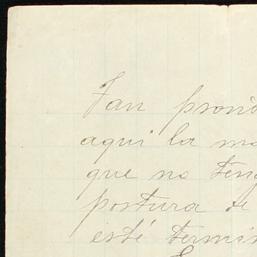 Tan pron
aqui la ma
que no teng
postura de
esté termin